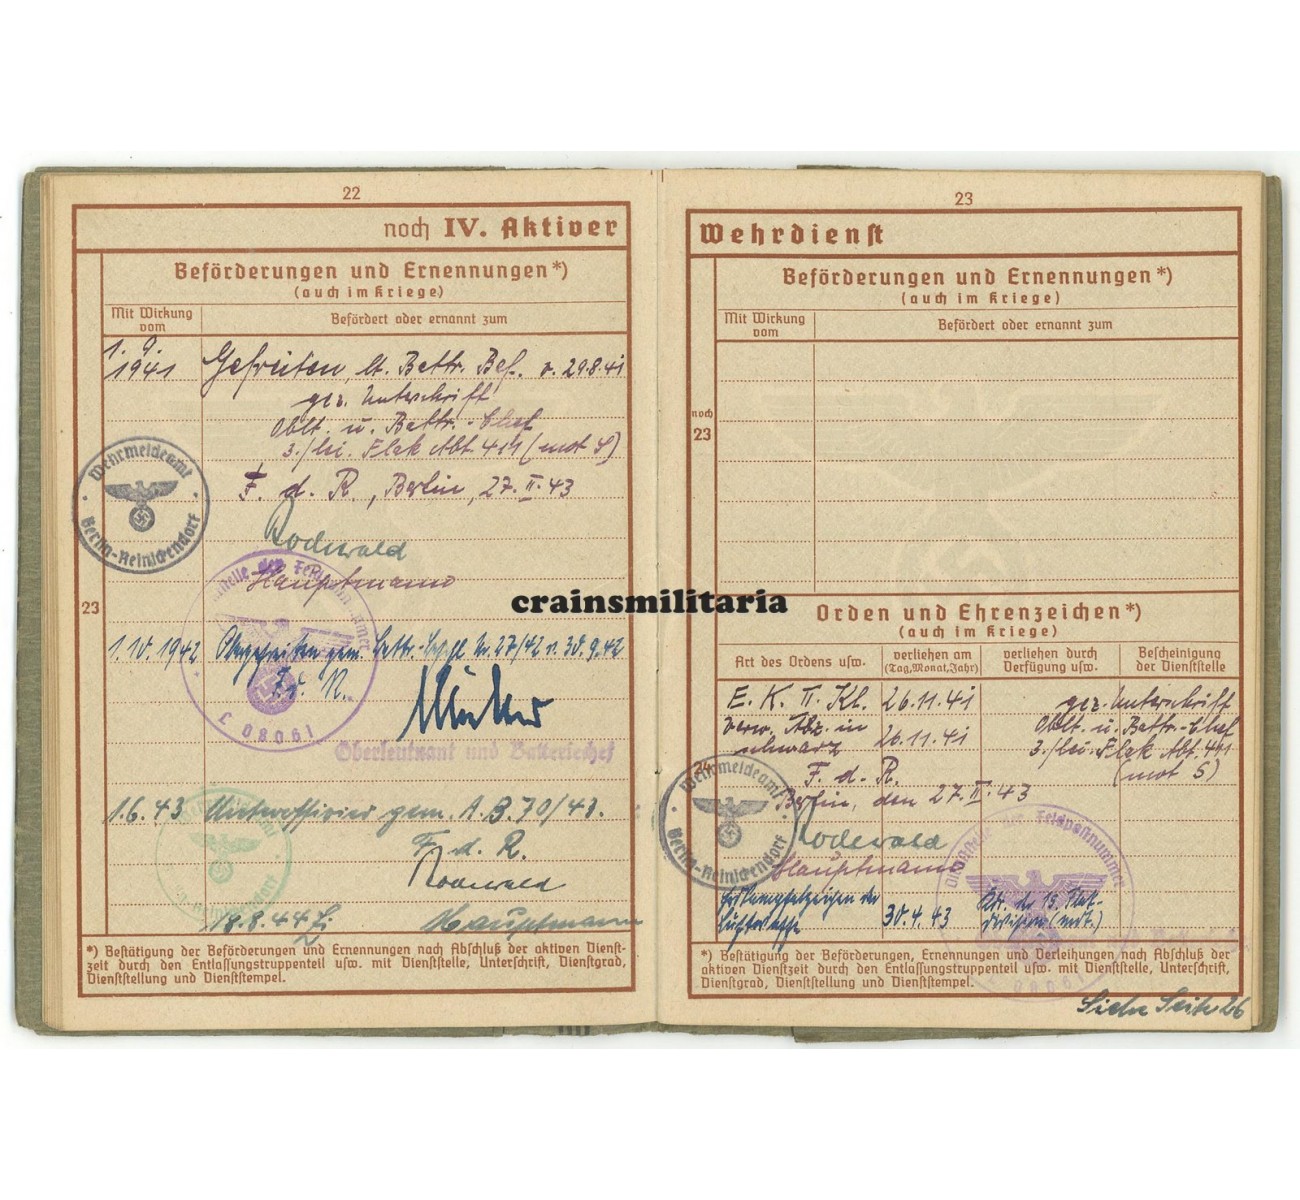 22
noch IV. Aktiver
Beförderungen und Ernennungen*)
(auch im Kriege)
Mit Wirkung vom
Befördert oder ernannt zum
1. 9. 1941 Gefreiten, lt. Battr. Bef. v. 29.8.41
gez. Unterschrift
Oblt. u. Battr.-Chef
3./lei. Flak Abt. 941 (mot S)
F. d. R., Berlin, 27. II. 43
Rodewald
Hauptmann
Wehrmeldeamt
Berlin-Reinickendorf
23
1. IV. 1942 Obergefreiten gem. Battr.-Befehl Nr. 27/42 v. 30.9.42
F. d. R.
Oberleutnant und Batteriechef
L 08061
1.6.43 Unteroffizier gem. A. B. 70/43.
F. d. R.
Rodewald
18.8.44
Hauptmann
*) Bestätigung der Beförderungen und Ernennungen nach Abschluß der aktiven Dienst-
zeit durch den Entlassungstruppenteil usw. mit Dienststelle, Unterschrift, Dienstgrad,
Dienststellung und Dienststempel.
23
Wehrdienst
Beförderungen und Ernennungen*)
(auch im Kriege)
Mit Wirkung vom
Befördert oder ernannt zum
noch
23
crainsmilitaria
Orden und Ehrenzeichen*)
(auch im Kriege)
Art des Ordens usw.
verliehen am (Tag, Monat, Jahr)
verliehen durch Verfügung usw.
Bescheinigung der Dienststelle
E. K. II. Kl. 26.11.41 gez. Unterschrift
Verw. Abz. in schwarz 26.11.41 Oblt. u. Battr.-Chef
3./lei. Flak Abt. 941
(mot S)
24
F. d. R.
Berlin, den 27. II. 43
Rodewald
Hauptmann
Wehrmeldeamt
Berlin-Reinickendorf
Erdkampfabzeichen der Luftwaffe 30.4.43 Kdr. der 15. Flak-
division (mot.)
Dienststelle der Feldpostnummer
L 08061
*) Bestätigung der Beförderungen, Ernennungen und Verleihungen nach Abschluß der
aktiven Dienstzeit durch den Entlassungstruppenteil usw. mit Dienststelle, Unterschrift,
Dienstgrad, Dienststellung und Dienststempel.
Siehe Seite 26